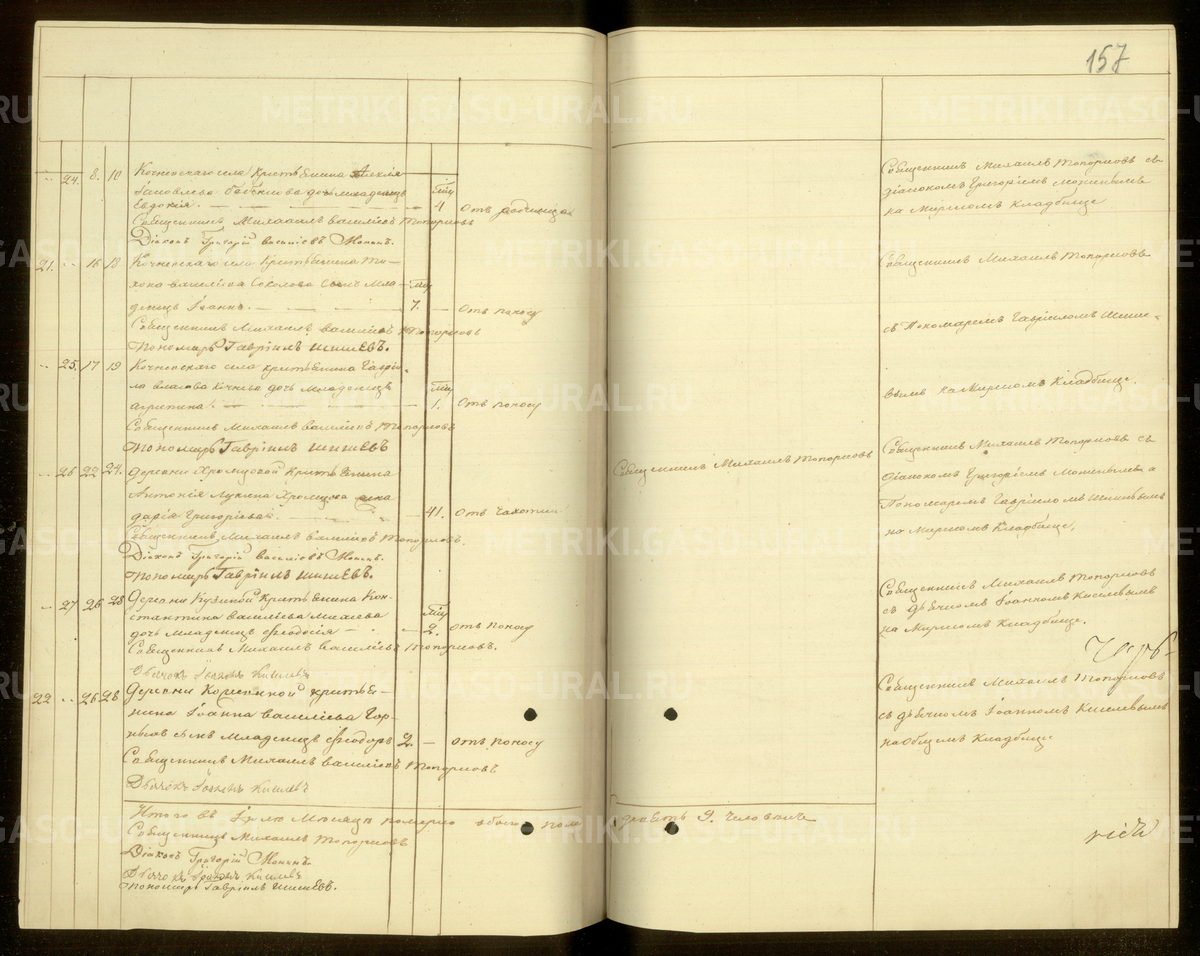 157
24. 8. 10 Кочневскаго села Крестьянина
дочь младенецъ мѣц
Евдокія. 4 отъ родимца
Священникъ Михаилъ Васильевъ Топорковъ
Діаконъ Григорій Васильевъ
21. 16 18 Кочневскаго села Крестьянина Ти-
хона Васильева Соколова сынъ мла- мѣц
денецъ Іоаннъ. 7. отъ поносу
Священникъ Михаилъ Васильевъ Топорковъ
Пономарь Гавріилъ Шишевъ.
25. 17 19 Кочневскаго села крестьянина Гаврі-
ла Власова дочь младенецъ мѣц
Агрипина. 1. отъ поносу
Священникъ Михаилъ Васильевъ Топорковъ
Пономарь Гавріилъ Шишевъ
26 22 24. Деревни Хромцовой Крестьянина
Антонія Лукина Хромцова жена
Дарія Григорьева. 41. отъ чахотки
Священникъ Михаилъ Васильевъ Топорковъ.
Діаконъ Григорій Васильевъ
Пономарь Гавріилъ Шишевъ.
27 26 28 Деревни Крестьянина Кон-
стантина Васильева мѣц
дочь младенецъ Феодосія 2. отъ поносу
Священникъ Михаилъ Васильевъ Топорковъ.
Дьячокъ Іоаннъ Киселевъ
22 26 28 Деревни крестья-
нина Іоанна Васильева Гор-
сынъ младенецъ Феодоръ 2. отъ поносу
Священникъ Михаилъ Васильевъ Топорковъ
Дьячокъ Іоаннъ Киселевъ
Итого въ Іюлѣ мѣсяцѣ померло обоего пола девять 9. человѣкъ
Священникъ Михаилъ Топорковъ
Діаконъ Григорій
Дьячокъ Іоаннъ Киселевъ
Пономарь Гавріилъ Шишевъ.
Священникъ Михаилъ Топорковъ
Священникъ Михаилъ Топорковъ съ
діакономъ Григоріемъ
на Мирскомъ Кладбище
Священникъ Михаилъ Топорковъ
съ Пономаремъ Гавріиломъ Шише-
вымъ на Мирскомъ Кладбище.
Священникъ Михаилъ Топорковъ съ
діакономъ Григоріемъ
Пономаремъ Гавріиломъ Шишевымъ
на Мирскомъ Кладбище.
Священникъ Михаилъ Топорковъ
съ дьячкомъ Іоанномъ Киселевымъ
на Мирскомъ Кладбище.
Священникъ Михаилъ Топорковъ
съ дьячкомъ Іоанномъ Киселевымъ
на общемъ Кладбище
METRIKI.GASO-URAL.RU